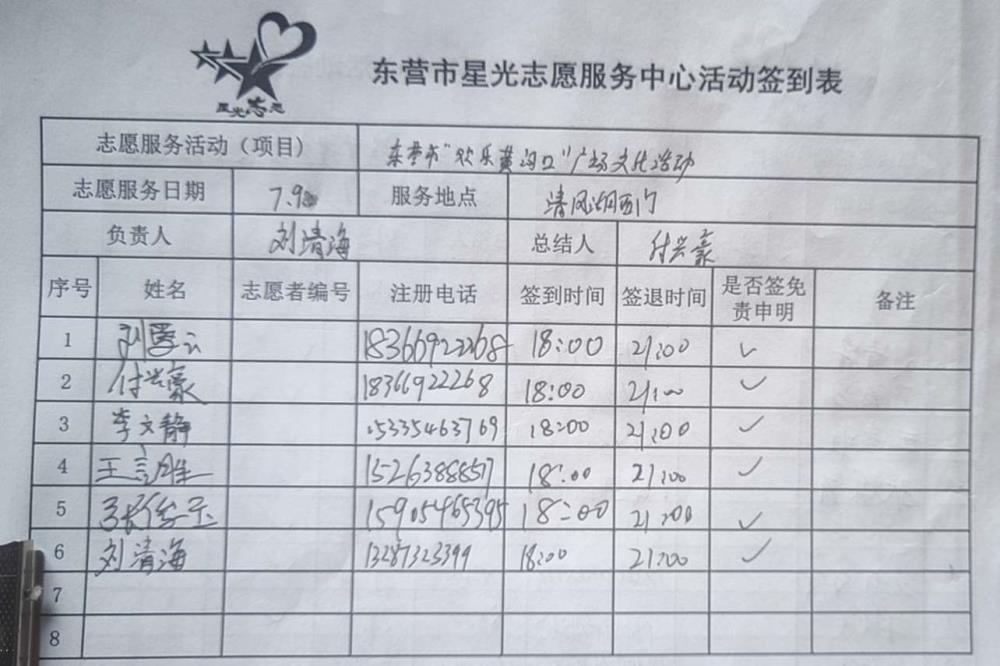 星光志愿
东营市星光志愿服务中心活动签到表
志愿服务活动（项目） 东营市"欢乐黄河口"广场文化活动
志愿服务日期 7.9 服务地点 清风湖西门
负责人 刘清海 总结人 付兴豪
序号 姓名 志愿者编号 注册电话 签到时间 签退时间 是否签免责申明 备注
1 刘云 18366922268 18:00 21:00 ✓
2 付兴豪 18366922268 18:00 21:00 ✓
3 李文静 15335463769 18:00 21:00 ✓
4 王 15263888517 18:00 21:00 ✓
5 玉 15905465395 18:00 21:00 ✓
6 刘清海 13287323399 18:00 21:00 ✓
7
8